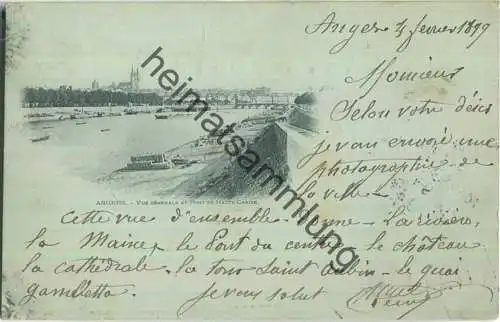 Angers 25 février 1899
Monsieur
Selon votre désir
je vais envoyé une
photographie de
la ville
ANGERS. - VUE GÉNÉRALE ET PONT DE HAUTE CHAINE
Cette vue d'ensemble donne - La rivière,
la Maine, le Pont du centre, le château
la cathédrale, la tour Saint Aubin - le quai
gambetta. je vous salut
heimatsammlung.de